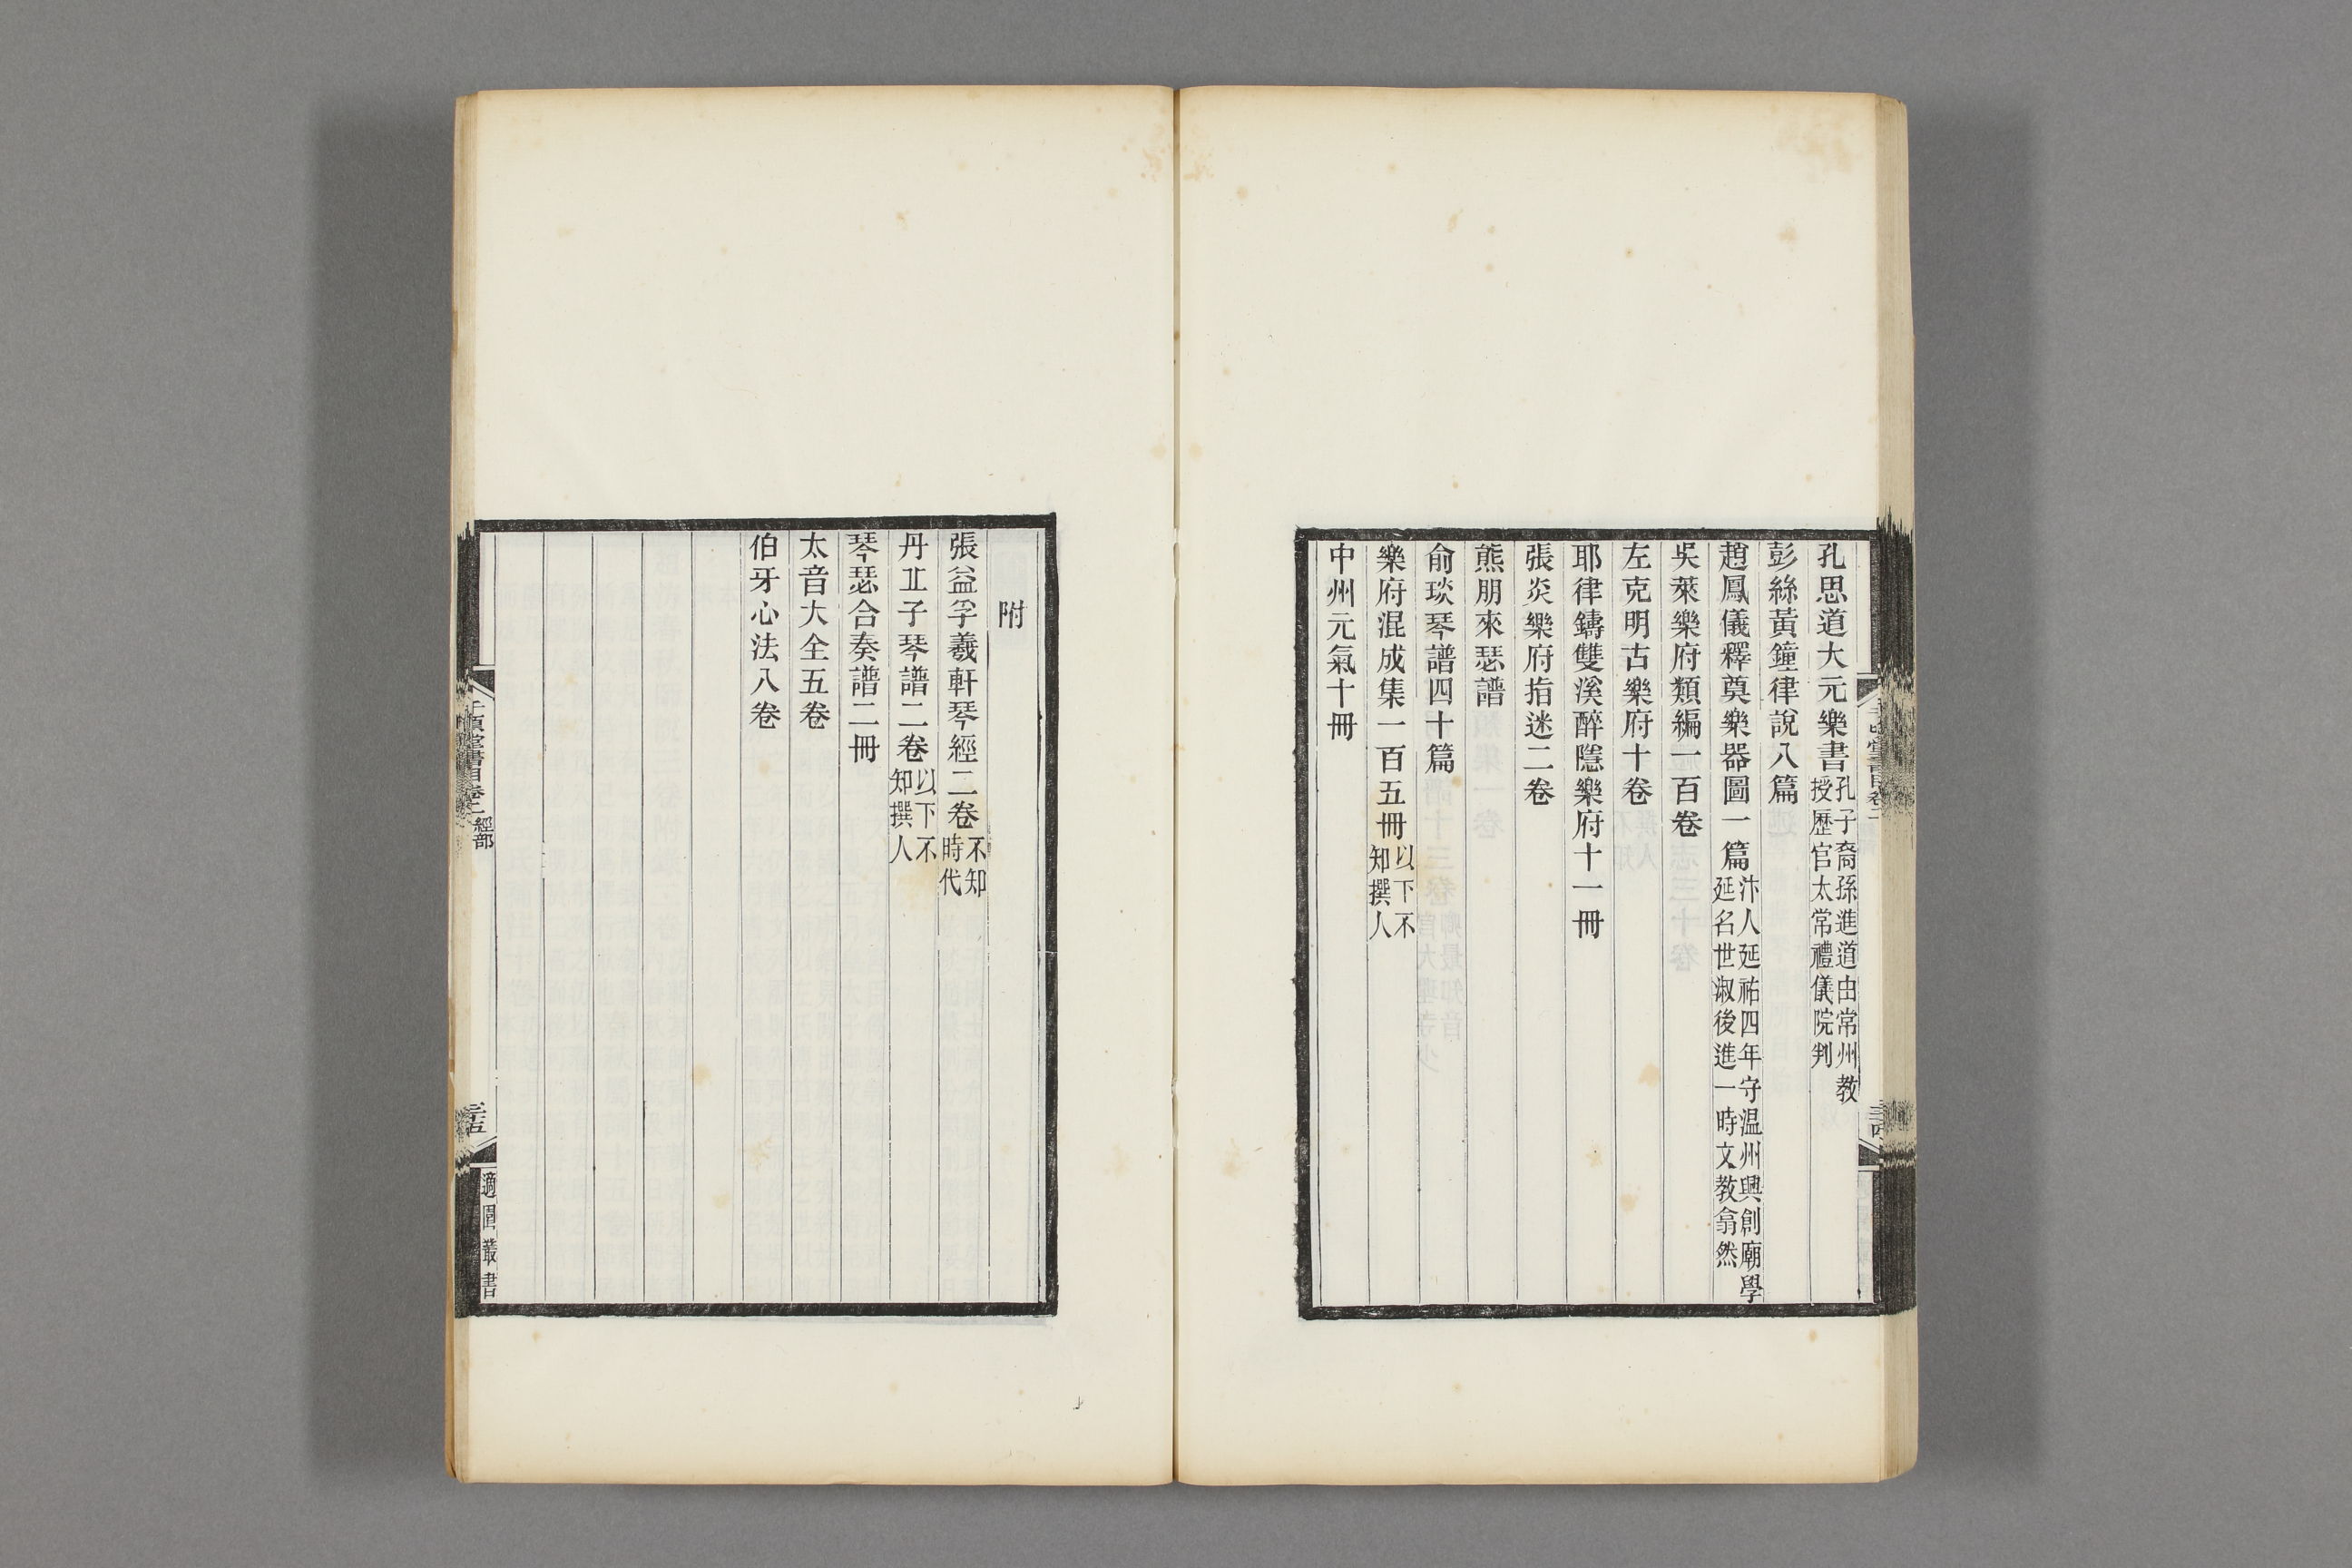 孔思道大元樂書孔子裔孫進道由常州教授歷官太常禮儀院判
彭絲黃鐘律說八篇
趙鳳儀釋奠樂器圖一篇汴人延祐四年守温州興創廟學延名世淑後進一時文教翕然
吳萊樂府類編一百卷
左克明古樂府十卷
耶律鑄雙溪醉隱樂府十一冊
張炎樂府指迷二卷
熊朋來瑟譜
俞琰琴譜四十篇
樂府混成集一百五冊以下不知撰人
中州元氣十冊
附
張益孚羲軒琴經二卷不知時代
丹丠子琴譜二卷以下不知撰人
琴瑟合奏譜二冊
太音大全五卷
伯牙心法八卷
千頃堂書目卷二經部
適園叢書